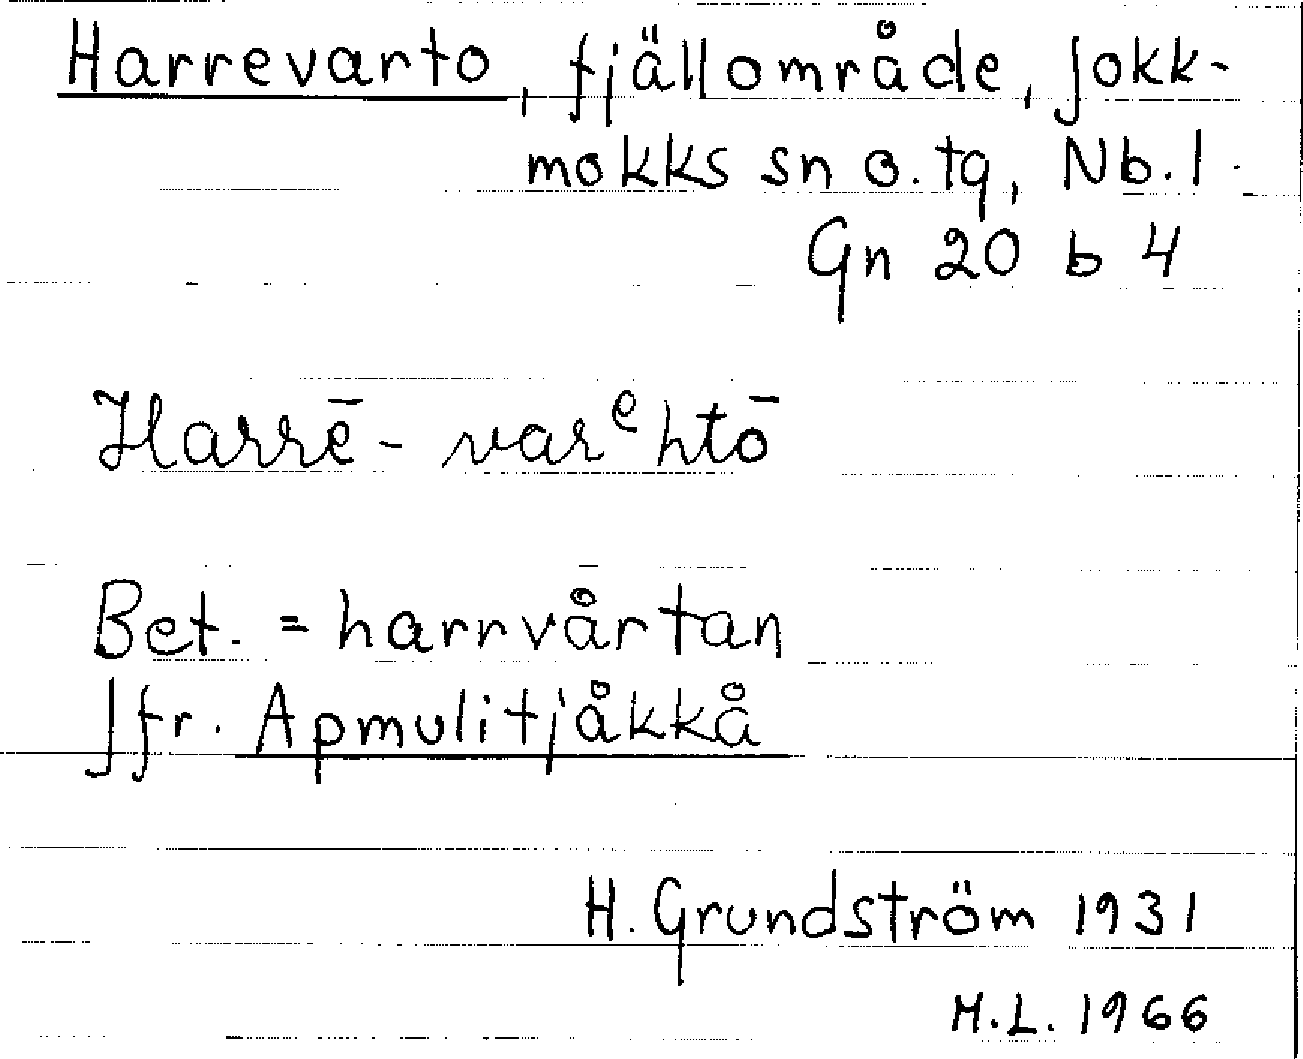 Harrevarto, fjällområde, Jokk-
mokks sn o. tg, Nb. l.
Gn 20 b 4
Harrē- varᵉhtō
Bet. = harrvårtan
Jfr. Apmulitjåkkå
H. Grundström 1931
M.L. 1966